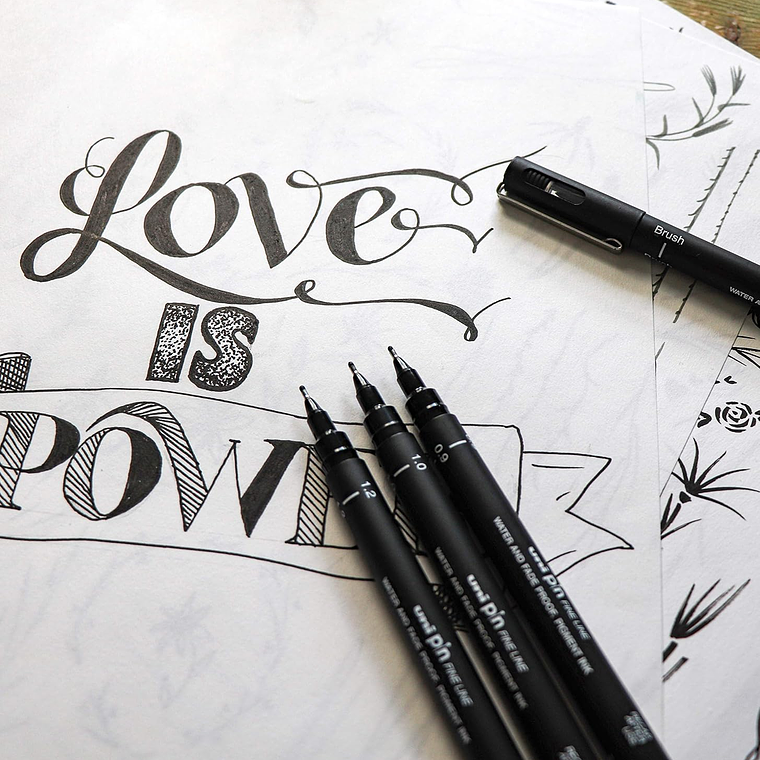 Love
IS
POW
Brush
WATER A
1.2
uni pin FINE LINE
WATER AND FADE PROOF, PIGMENT INK
1.0
uni pin FINE LINE
WATER AND FADE PROOF, PIGMENT INK
0.9
uni pin FINE LINE
WATER AND FADE PROOF, PIGMENT INK